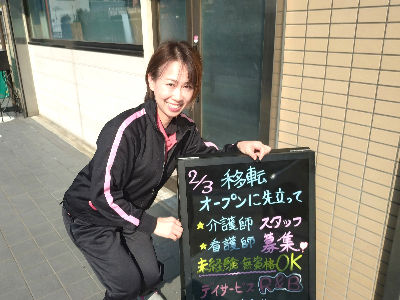 2/3 移転
オープンに先立って
★介護師 スタッフ
★看護師 募集♥
未経験 無資格OK
デイサービス R&B